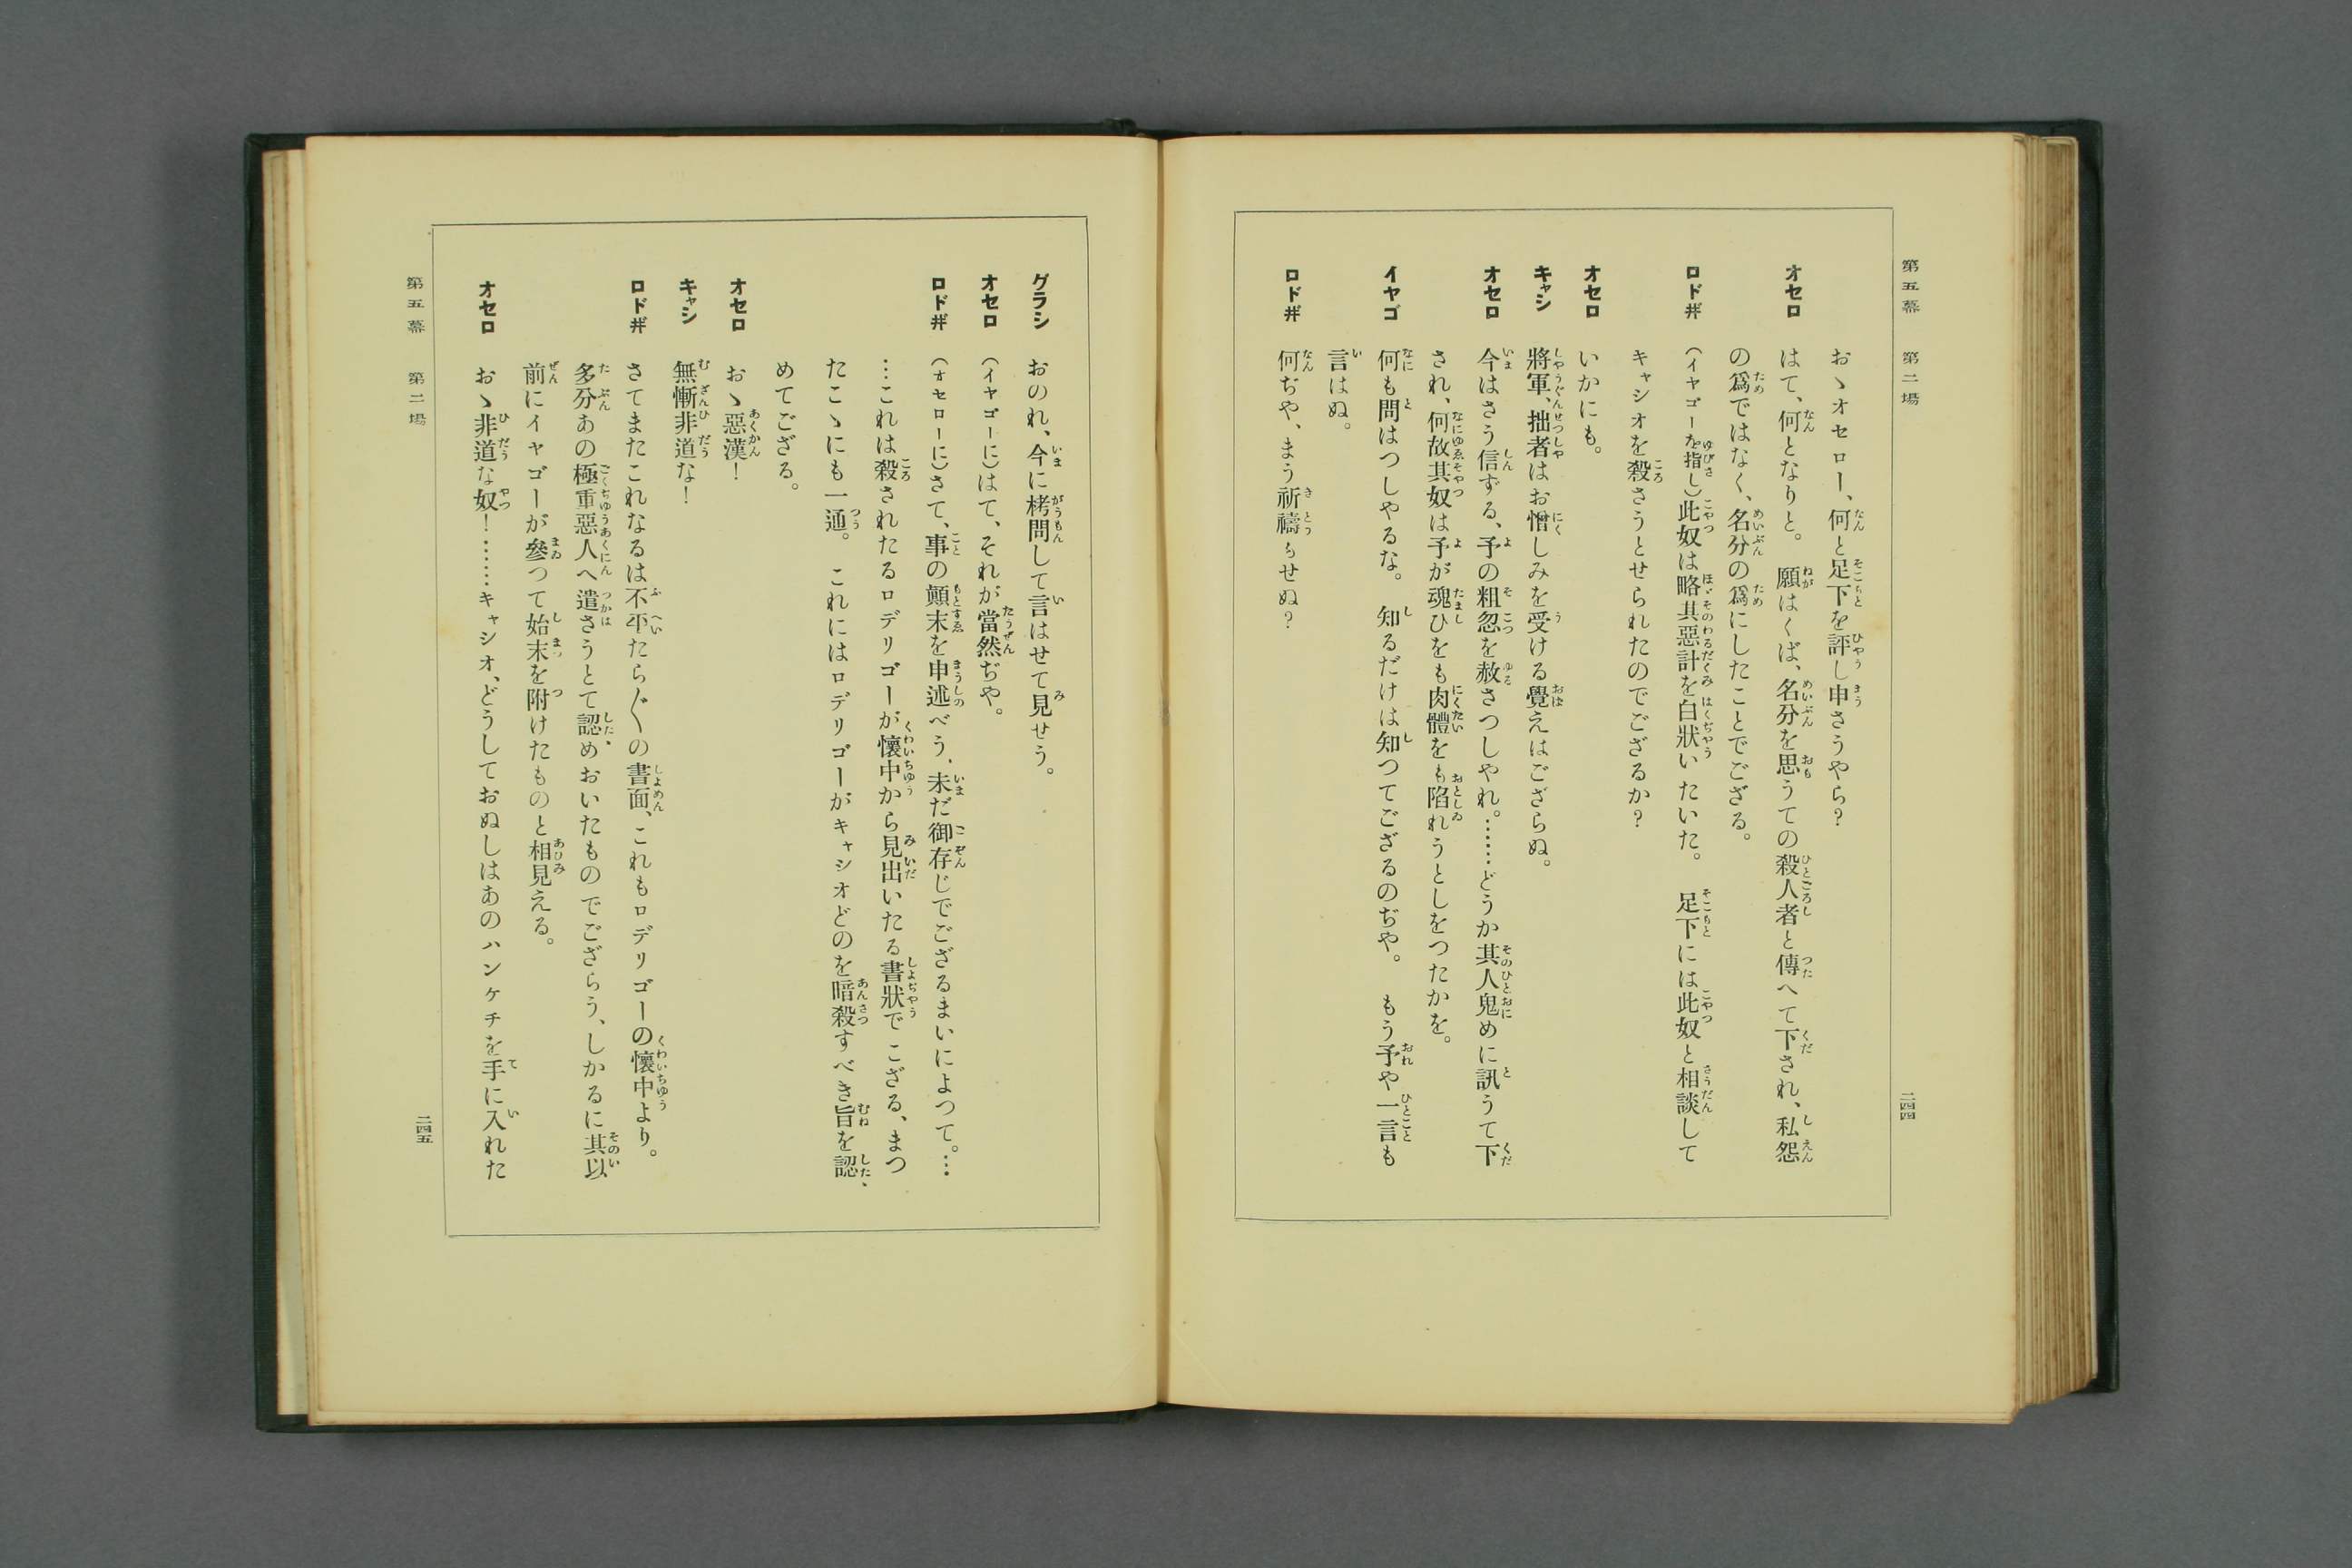 第五幕　第二場
おゝオセロー、何と足下を評し申さうやら？
オセロ　はて、何となりと。　願はくば、名分を思うての殺人者と傳へて下され、私怨
の爲ではなく、名分の爲にしたことでござる。
ロドヸ　（イヤゴーを指し）此奴は略其惡計を白狀いたいた。　足下には此奴と相談して
キャシオを殺さうとせられたのでござるか？
オセロ　いかにも。
キャシ　將軍、拙者はお憎しみを受ける覺えはござらぬ。
オセロ　今はさう信ずる、予の粗忽を赦さつしやれ。……どうか其人鬼めに訊うて下
され、何故其奴は予が魂ひをも肉體をも陷れうとしをつたかを。
イヤゴ　何も問はつしやるな。　知るだけは知つてござるのぢや。　もう予や一言も
言はぬ。
ロドヸ　何ぢや、まう祈禱もせぬ？
二四四
第五幕　第二場
グラシ　おのれ、今に栲問して言はせて見せう。
オセロ　（イヤゴーに）はて、それが當然ぢや。
ロドヸ　（オセローに）さて、事の顚末を申述べう、未だ御存じでござるまいによつて。…
…これは殺されたるロデリゴーが懷中から見出いたる書狀でござる、まつ
たこゝにも一通。　これにはロデリゴーがキャシオどのを暗殺すべき旨を認
めてござる。
オセロ　おゝ惡漢！
キャシ　無慚非道な！
ロドヸ　さてまたこれなるは不平たら〴〵の書面、これもロデリゴーの懷中より。
多分あの極重惡人へ遣さうとて認めおいたものでござらう、しかるに其以
前にイヤゴーが參つて始末を附けたものと相見える。
オセロ　おゝ非道な奴！……キャシオ、どうしておぬしはあのハンケチを手に入れた
二四五